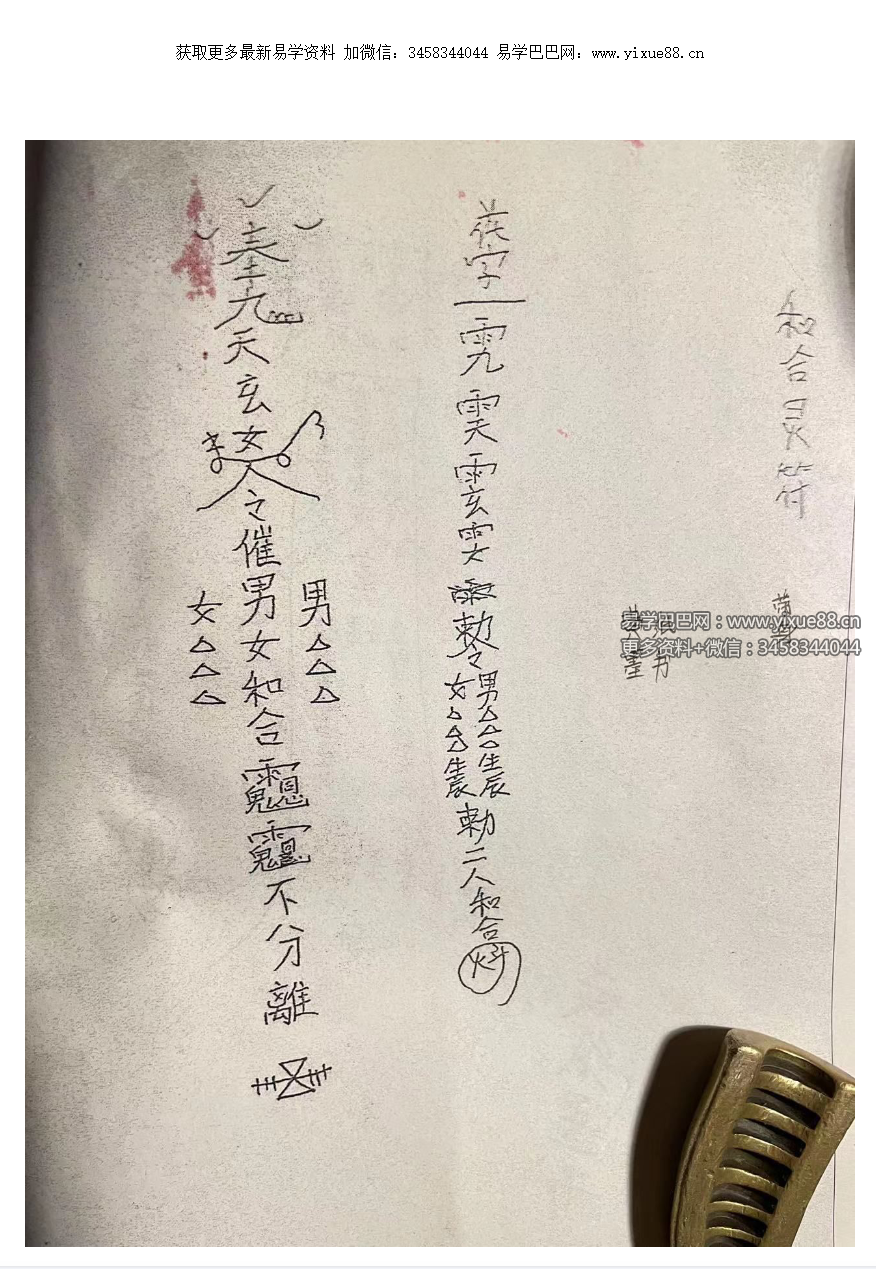 获取更多最新易学资料 加微信：3458344044 易学巴巴网：www.yixue88.cn
和合灵符
易学巴巴网：www.yixue88.cn
更多资料+微信：3458344044
字
雨九 雨天 雨玄
敕令
男△△△生辰
女△△△生辰
敕二人和合
奉九天玄女令催男女和合
男△△△
女△△△
不分離